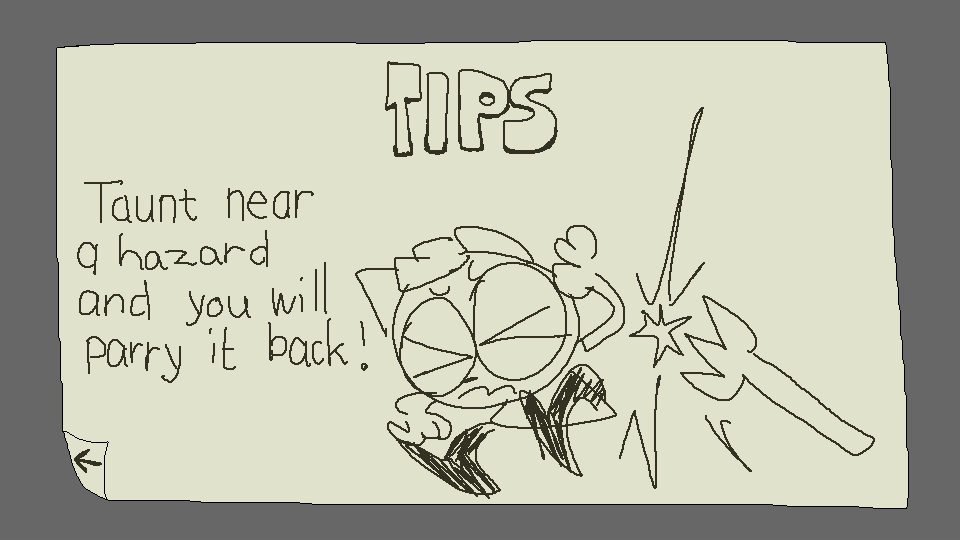 TIPS
Taunt near
a hazard
and you will
parry it back!